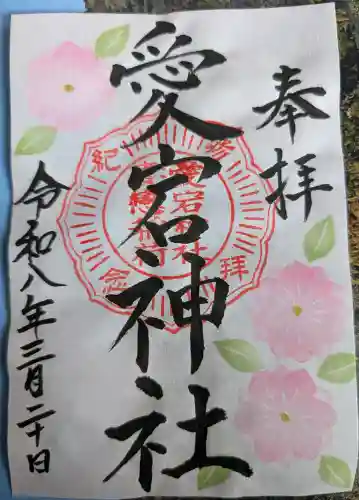 奉拝
愛宕神社
令和八年三月二十日
参拝紀念
愛宕神社